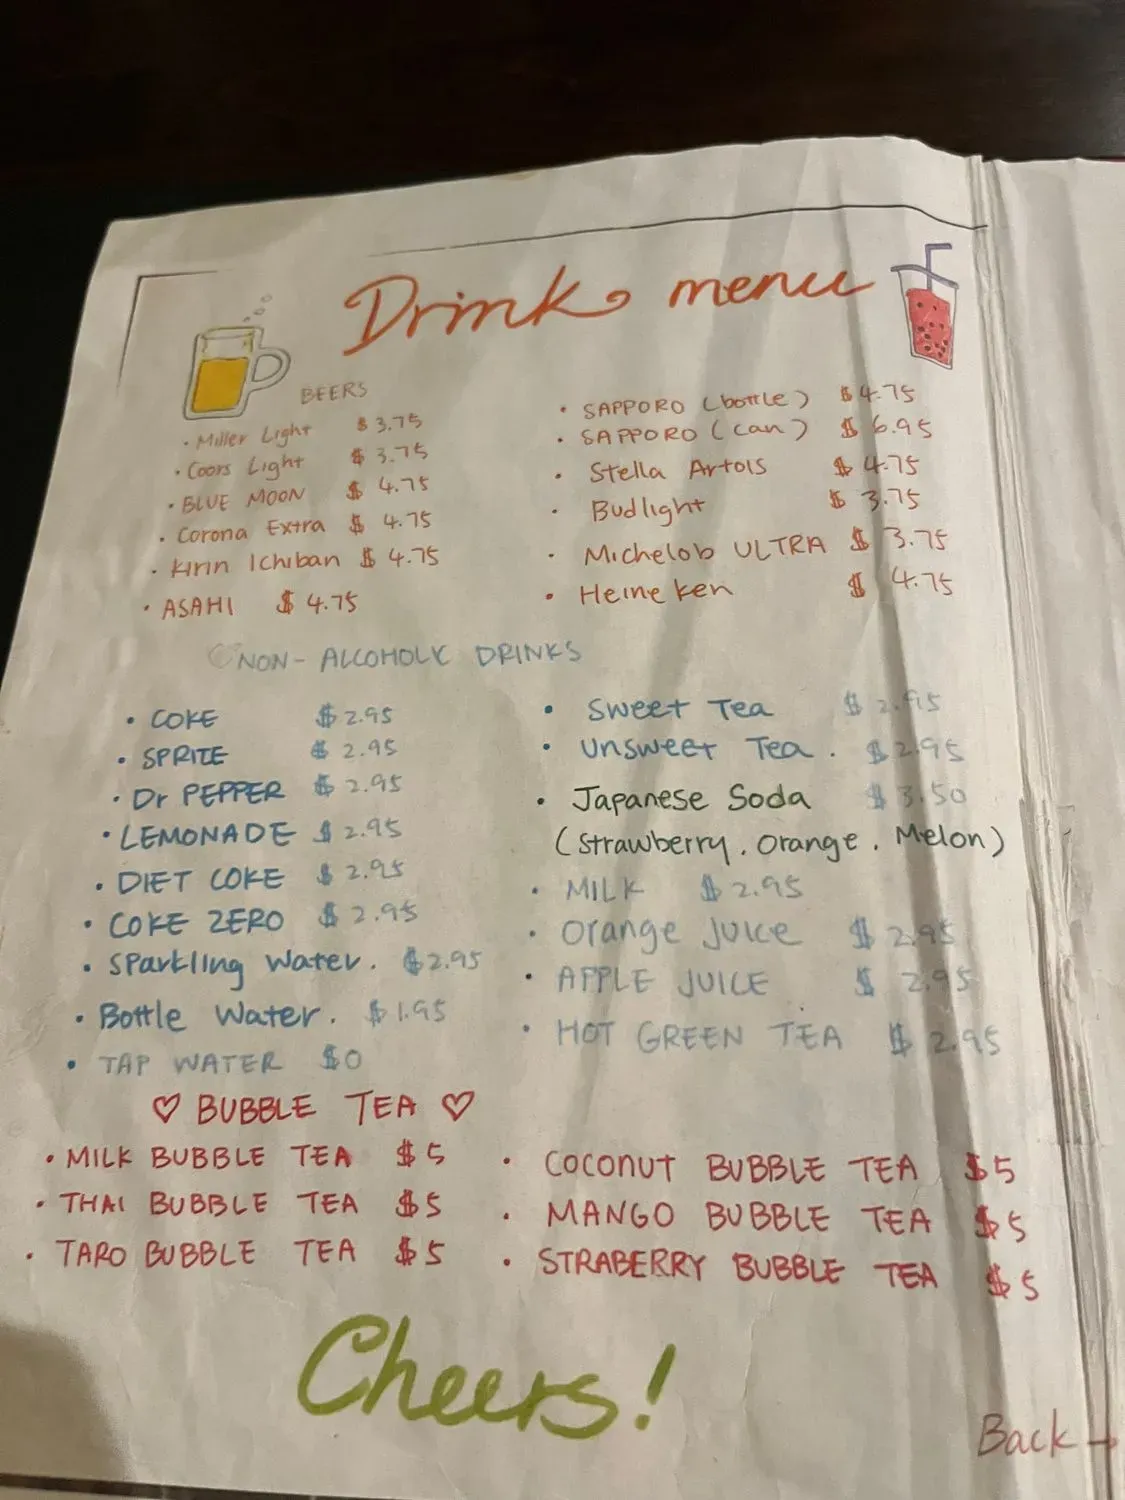 Drink menu
BEERS
· Miller Light $3.75
· Coors Light $3.75
· BLUE MOON $4.75
· Corona Extra $4.75
· Kirin Ichiban $4.75
· ASAHI $4.75
· SAPPORO (bottle) $4.75
· SAPPORO (can) $6.95
· Stella Artois $4.75
· Budlight $3.75
· Michelob ULTRA $3.75
· Heineken $4.75
NON-ALCOHOLIC DRINKS
· COKE $2.95
· SPRITE $2.95
· Dr PEPPER $2.95
· LEMONADE $2.95
· DIET COKE $2.95
· COKE ZERO $2.95
· Sparkling Water. $2.95
· Bottle Water. $1.95
· TAP WATER $0
· Sweet Tea $2.95
· Unsweet Tea. $2.95
· Japanese Soda $3.50
(Strawberry. Orange. Melon)
· MILK $2.95
· Orange Juice $2.95
· APPLE JUICE $2.95
· HOT GREEN TEA $2.95
♡ BUBBLE TEA ♡
· MILK BUBBLE TEA $5
· THAI BUBBLE TEA $5
· TARO BUBBLE TEA $5
· COCONUT BUBBLE TEA $5
· MANGO BUBBLE TEA $5
· STRABERRY BUBBLE TEA $5
Cheers!
Back →